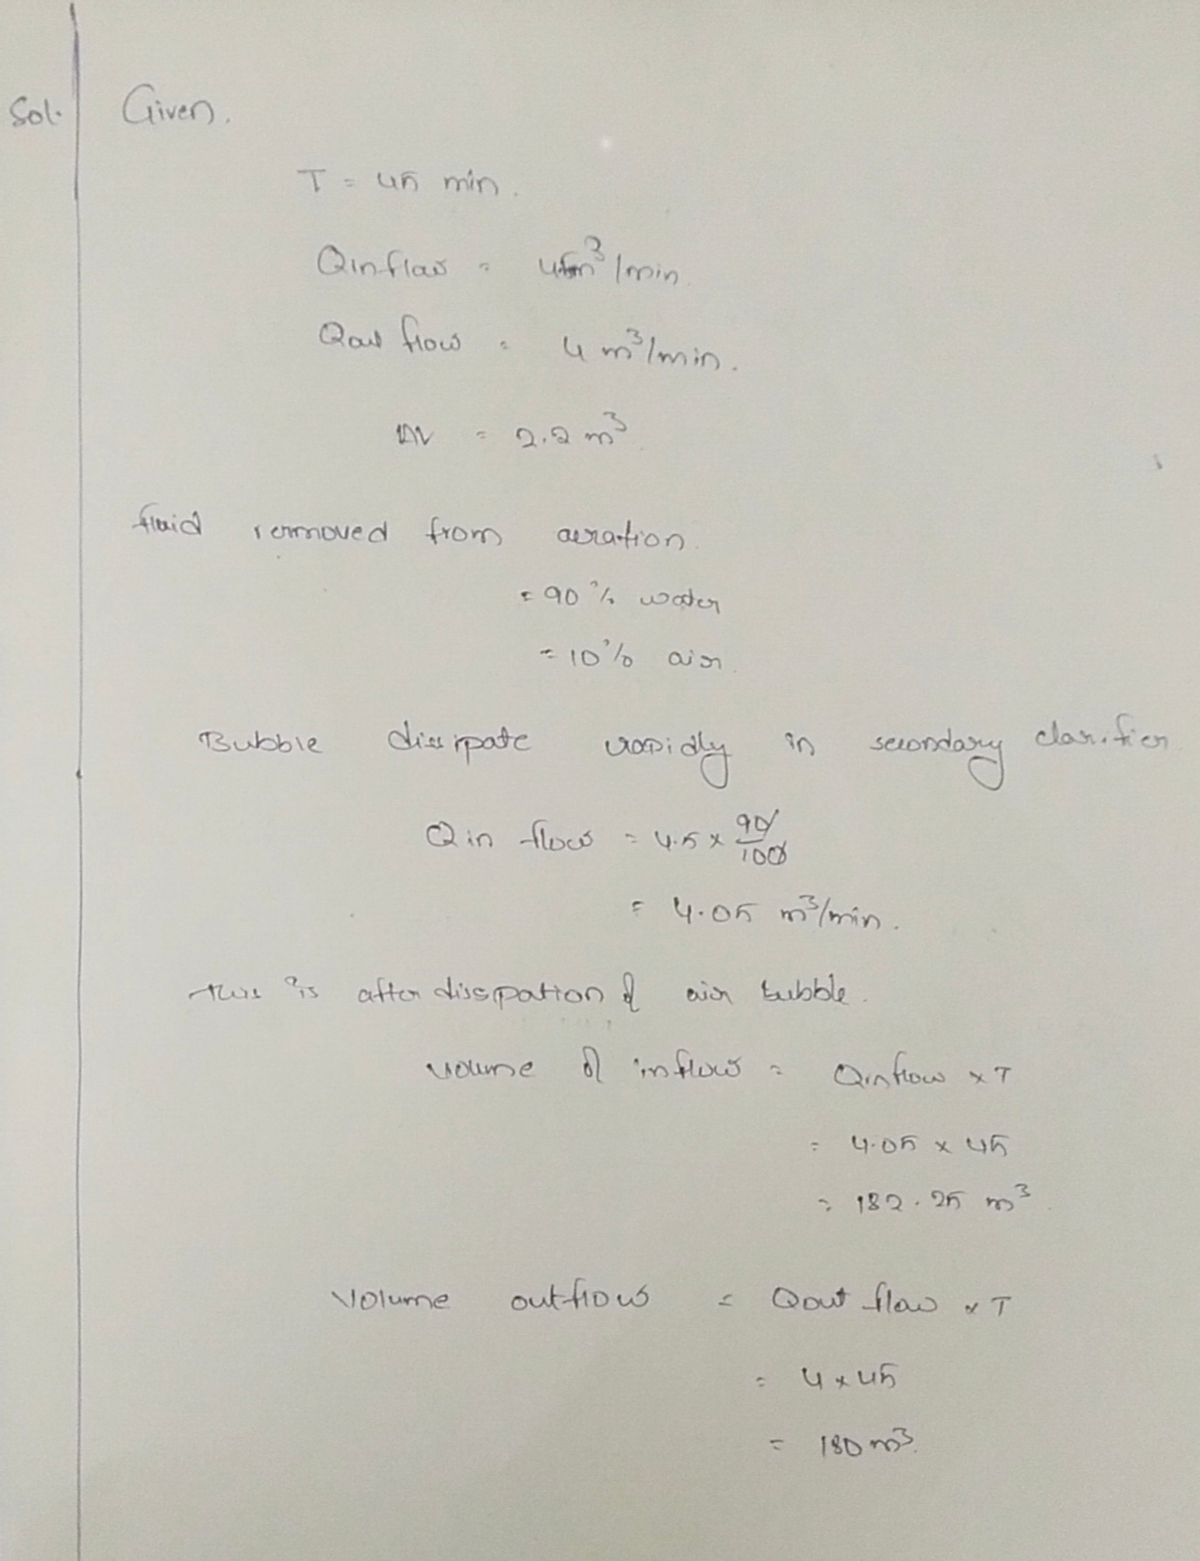 Sol. Given.
T = 45 min.
Qinflow = 4.5m³/min.
Qout flow = 4 m³/min.
ΔV = 2.2 m³
fluid removed from aeration.
= 90% water
= 10% air.
Bubble dissipate rapidly in secondary clarifier
Qin flow = 4.5 × 90/100
= 4.05 m³/min.
this is after disspation of air bubble.
volume of inflow = Qinflow × T
= 4.05 × 45
= 182.25 m³.
Volume outflow = Qout flow × T
= 4 × 45
= 180 m³.